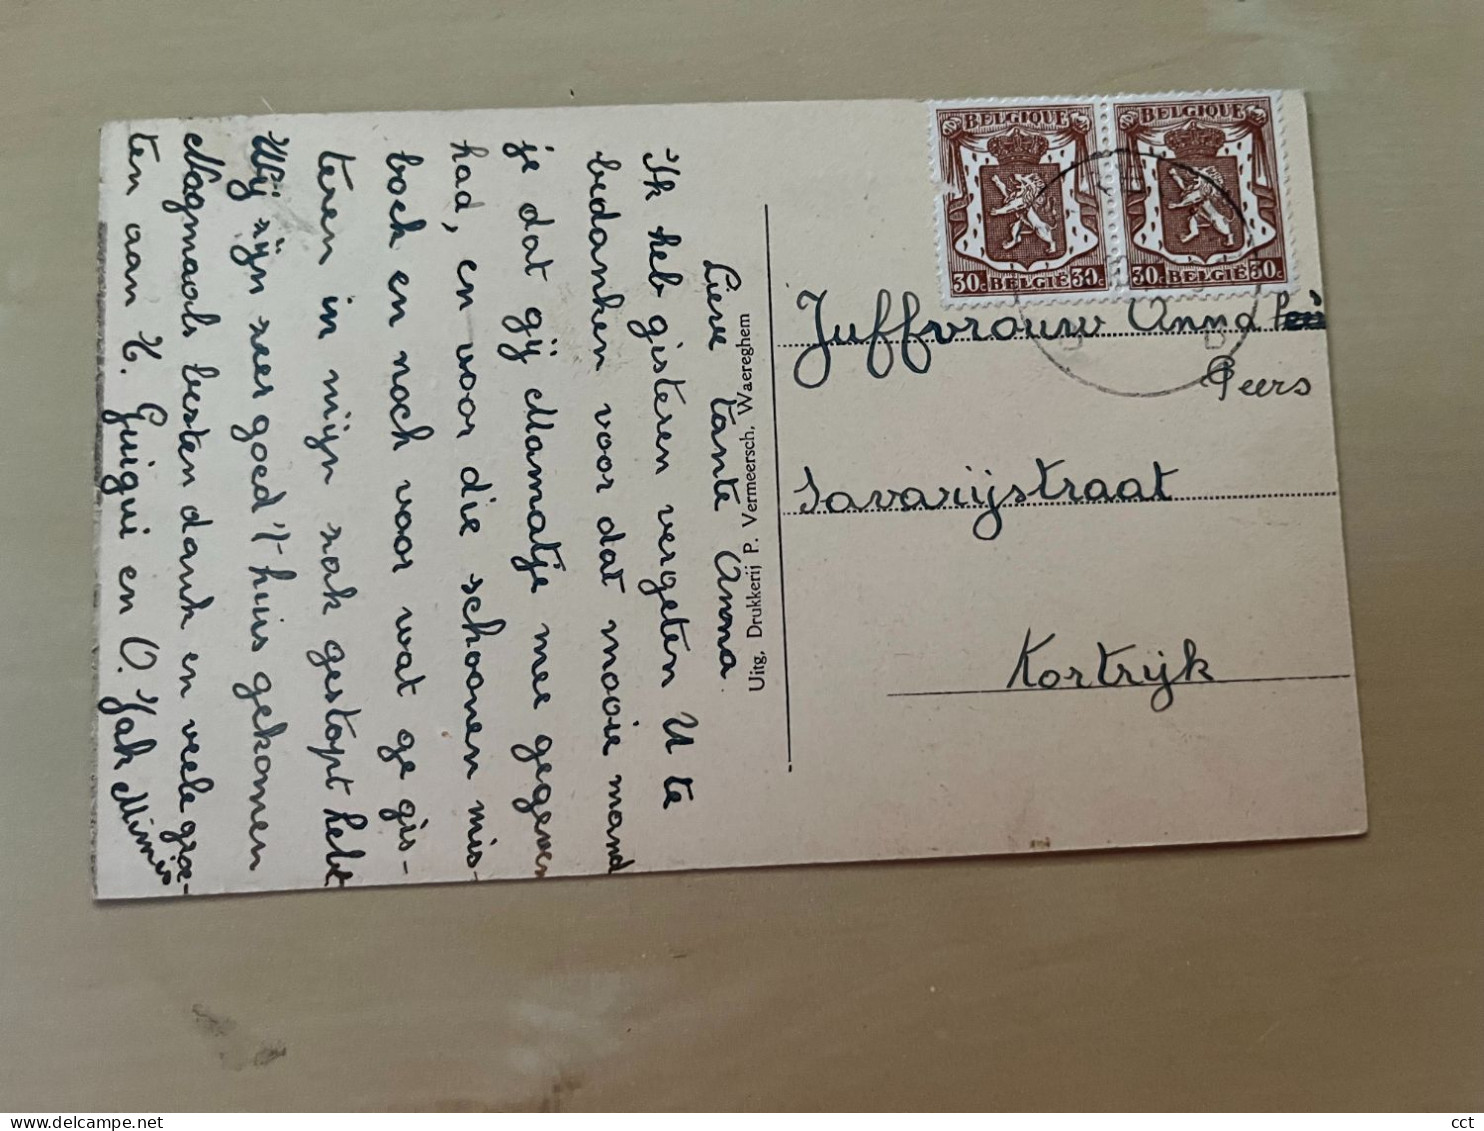 Lieve tante Anna
Ik heb gisteren vergeten U te
bedanken voor dat mooie mand
je dat gij Mamatje mee gegeven
had, en voor die schoonen mis-
boek en noch voor wat ge gis-
teren in mijn zak gestopt hebt
Wij zijn zeer goed 't huis gekomen
Nogmaals besten dank en veele groe-
ten aan T. Guigui en O. Jah Mimis
Uitg, Drukkerij P. Vermeersch, Waereghem
BELGIQUE
30c BELGIË 30c
BELGIQUE
30c BELGIË 30c
Juffvrouw Anna
Peers
Savarijstraat
Kortrijk
cct